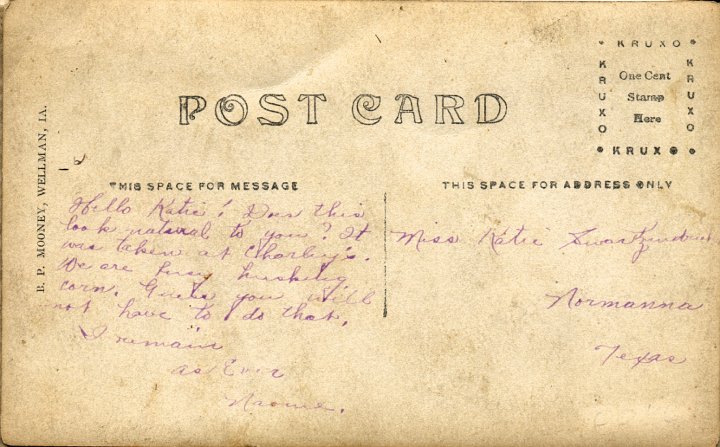 POST CARD
KRUXO
KRUXO
KRUXO
KRUXO
One Cent
Stamp
Here
B. P. MOONEY, WELLMAN, IA.
THIS SPACE FOR MESSAGE
THIS SPACE FOR ADDRESS ONLY
Hello Katie! Does this
look natural to you? It
was taken at Charley's.
We are busy husking
corn. Guess you will
not have to do that.
I remain
as Ever
Miss Katie
Normanna
Texas